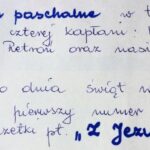 paschalne w t
czterej kapłani:
Retroń oraz nasi
o dnia świąt
pierwszy numer
zetki pt. „Z Jezu